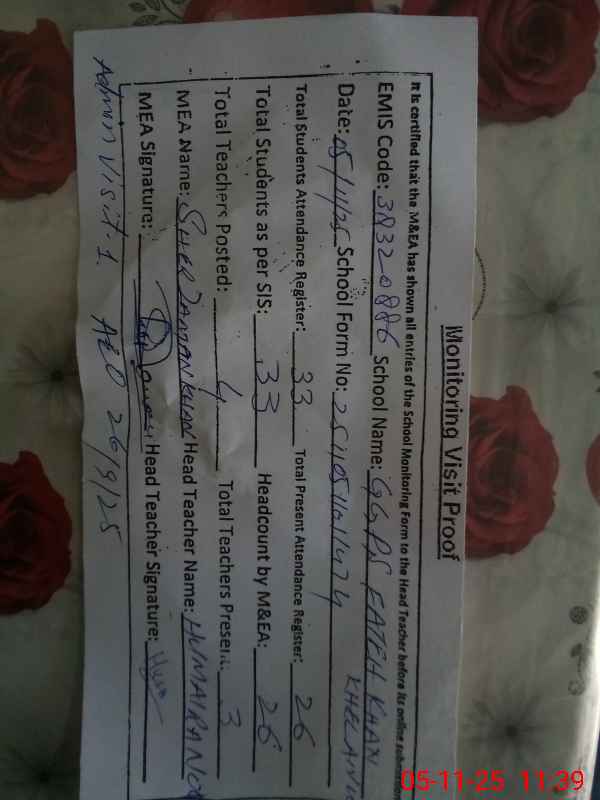 Monitoring Visit Proof
It is certified that the M&EA has shown all entries of the School Monitoring Form to the Head Teacher before its online
EMIS Code: 38320886 School Name: GGPS FATEH KHAN
KHELANW
Date: 05/11/25 School Form No:
Total Students Attendance Register: 33 Total Present Attendance Register: 26
Total Students as per SIS: 33 Headcount by M&EA: 26
Total Teachers Posted: 4 Total Teachers Present: 3
MEA Name: SHER ZAMAN KHAN Head Teacher Name: HUMAIRA NOO
MEA Signature: Head Teacher Signature:
Admin Visit. 1 AEO 26/9/25
05-11-25 11:39